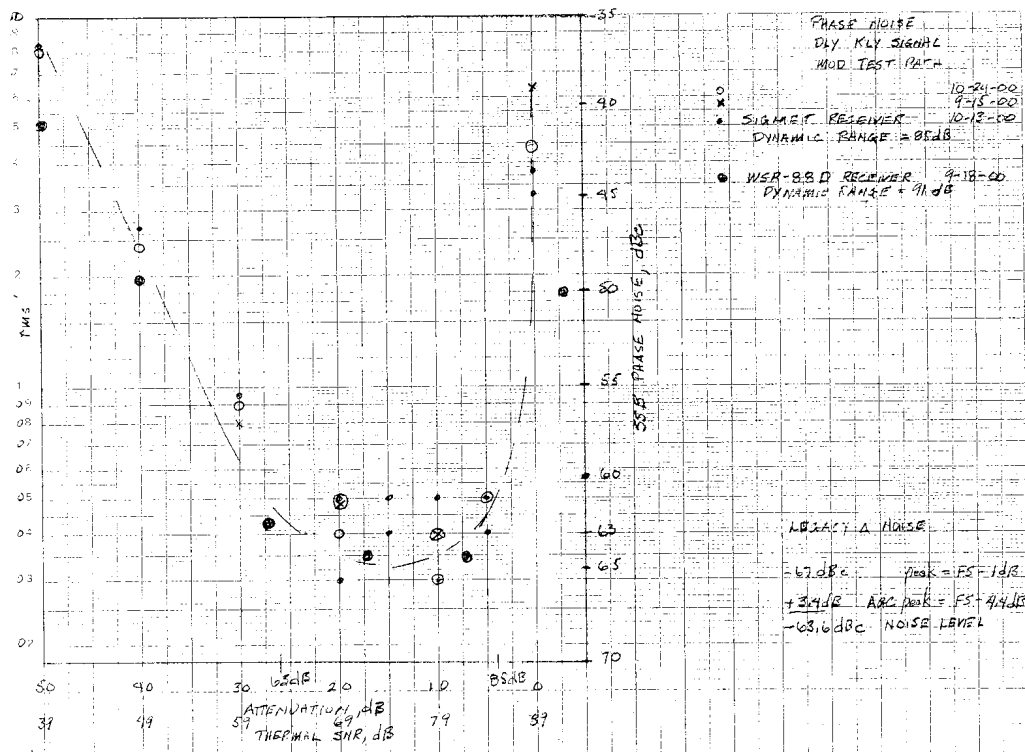 PHASE NOISE
DLY KLY SIGNAL
MOD TEST PATH
o 10-24-00
x 9-15-00
• SIGMET RECEIVER 10-13-00
DYNAMIC RANGE = 85dB
WSR-88D RECEIVER 9-18-00
DYNAMIC RANGE = 91dB
-35
40
45
50
55
60
63
65
70
SSB PHASE NOISE, dBc
rms
5
3
2
1
09
08
07
06
05
04
03
02
LEGACY Δ NOISE
-67 dBc peak = FS-1dB
+3.4dB AGC peak = FS-4.4dB
-63.6 dBc NOISE LEVEL
63dB 85dB
50 40 30 20 10 0
ATTENUATION, dB
39 49 59 69 79 89
THERMAL SNR, dB